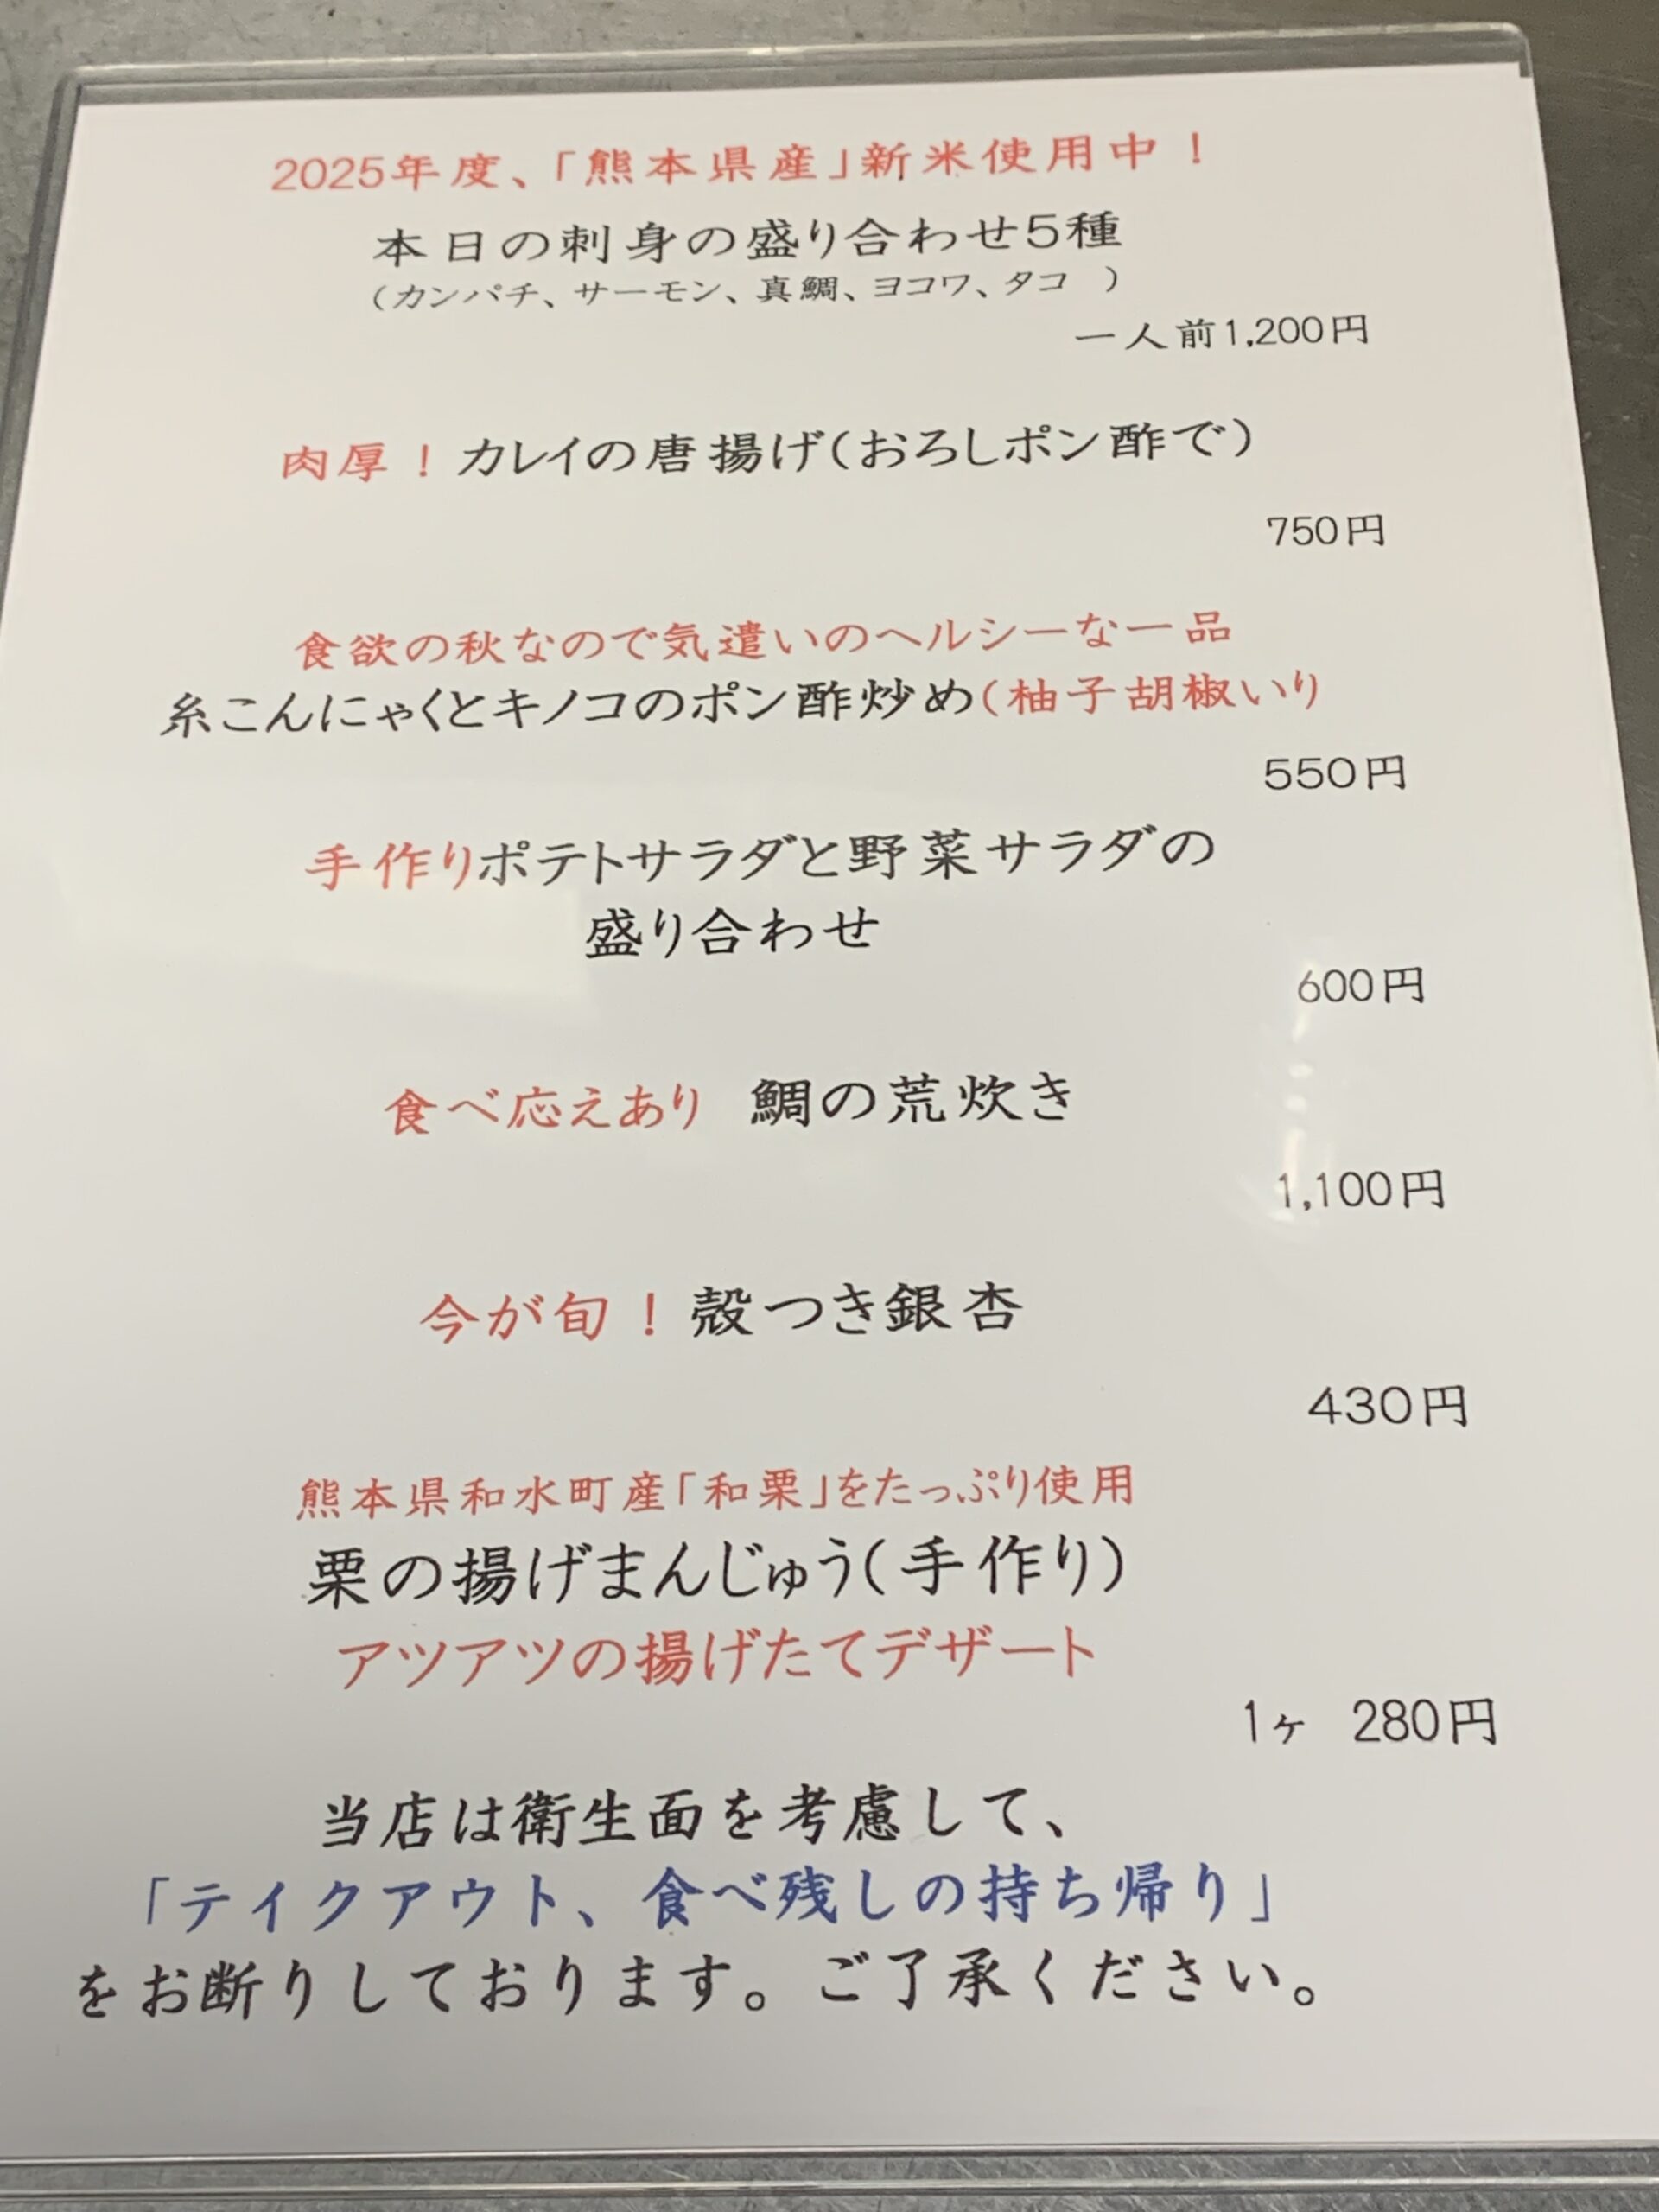 2025年度、「熊本県産」新米使用中！
本日の刺身の盛り合わせ5種
（カンパチ、サーモン、真鯛、ヨコワ、タコ　）
一人前1,200円
肉厚！カレイの唐揚げ（おろしポン酢で）
750円
食欲の秋なので気遣いのヘルシーな一品
糸こんにゃくとキノコのポン酢炒め（柚子胡椒いり
550円
手作りポテトサラダと野菜サラダの
盛り合わせ
600円
食べ応えあり　鯛の荒炊き
1,100円
今が旬！殻つき銀杏
430円
熊本県和水町産「和栗」をたっぷり使用
栗の揚げまんじゅう（手作り）
アツアツの揚げたてデザート
1ヶ　280円
当店は衛生面を考慮して、
「テイクアウト、食べ残しの持ち帰り」
をお断りしております。ご了承ください。